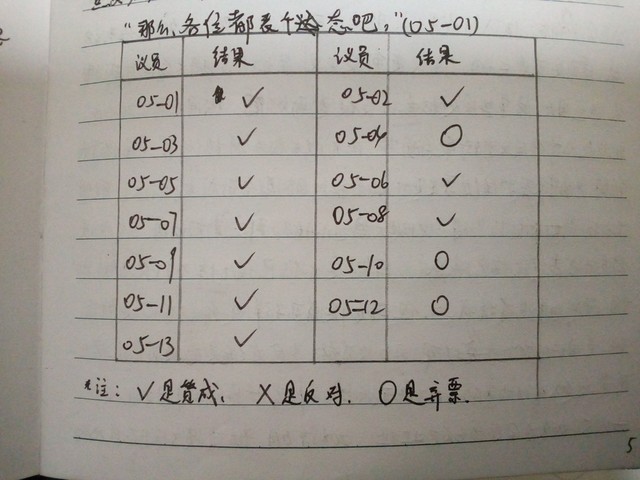 "那么,各位都表个态吧,"(05-01)
议员 结果 议员 结果
05-01 ✓ 05-02 ✓
05-03 ✓ 05-04 ○
05-05 ✓ 05-06 ✓
05-07 ✓ 05-08 ✓
05-09 ✓ 05-10 ○
05-11 ✓ 05-12 ○
05-13 ✓
*注: ✓是赞成, ×是反对, ○是弃票.
5